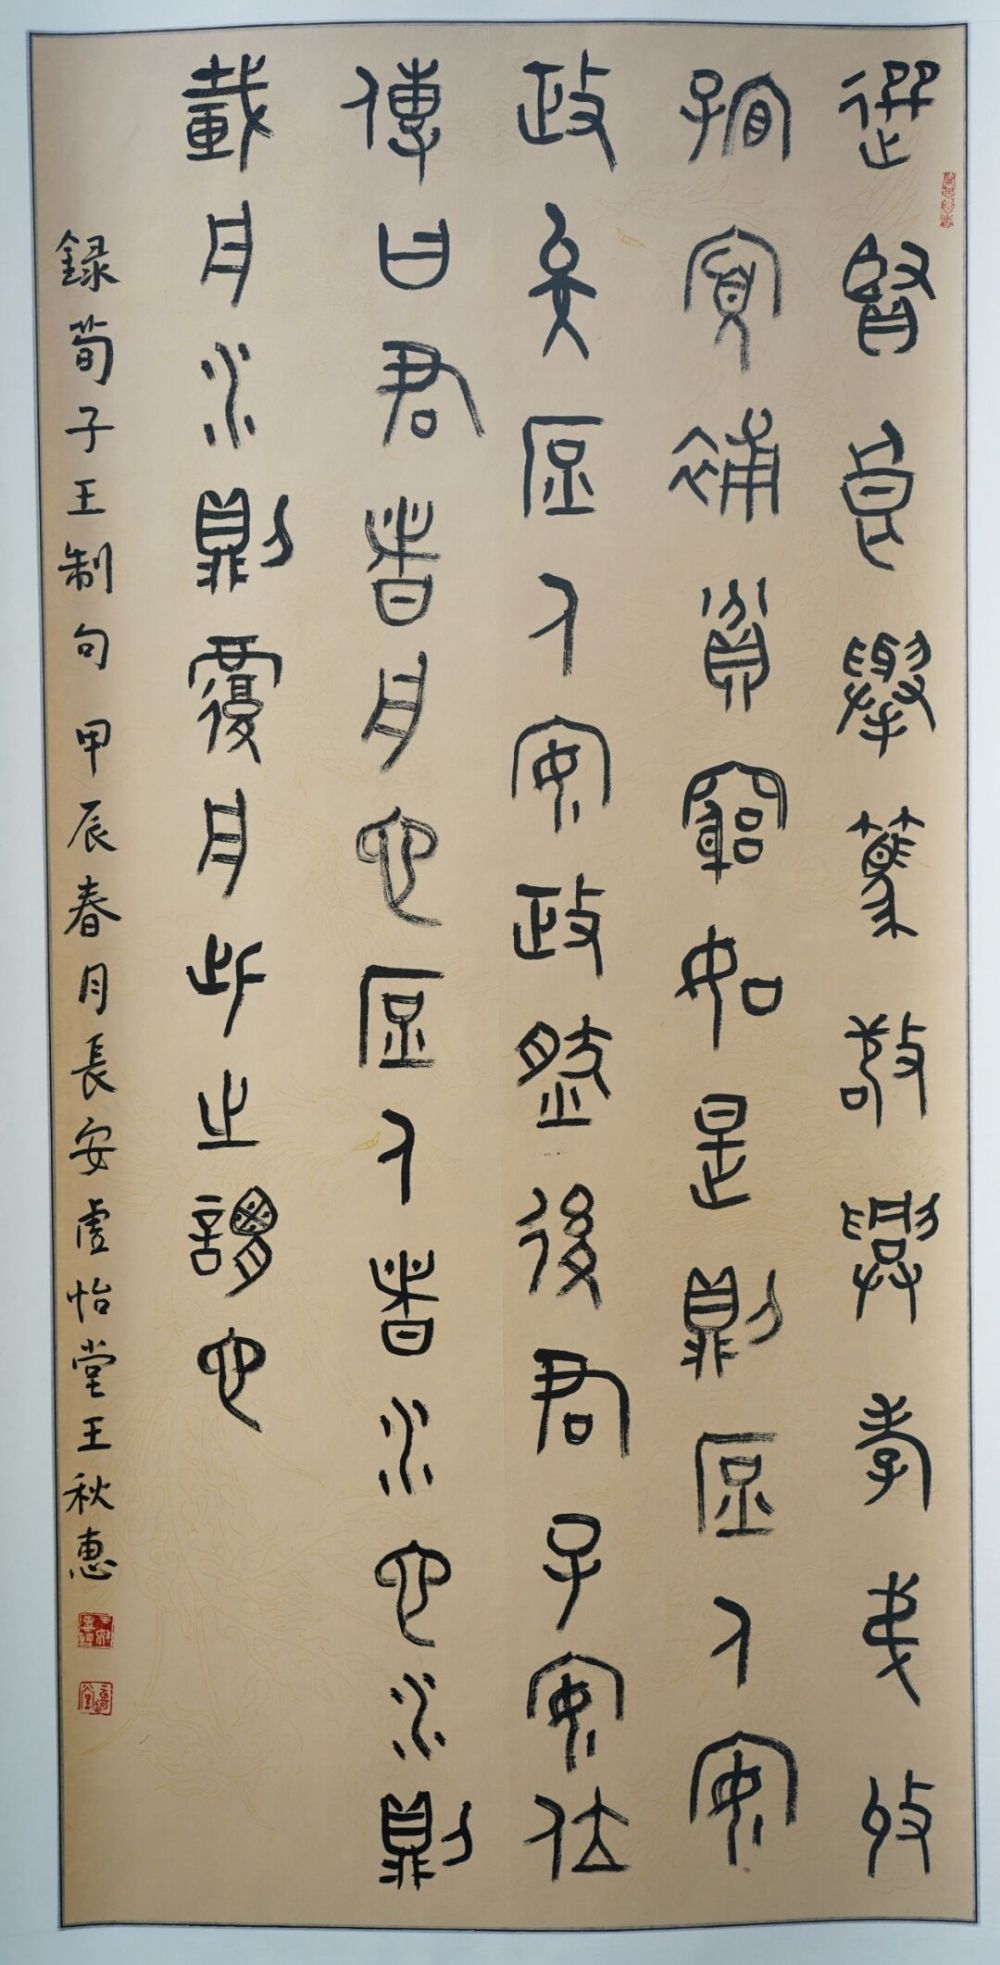 選賢良舉篤敬興孝弟收
孤寡補貧窮如是則庶人安
政矣庶人安政然後君子安位
傳曰君者舟也庶人者水也水則
載舟水則覆舟此之謂也
録荀子王制句甲辰春月長安虛怡堂王秋惠